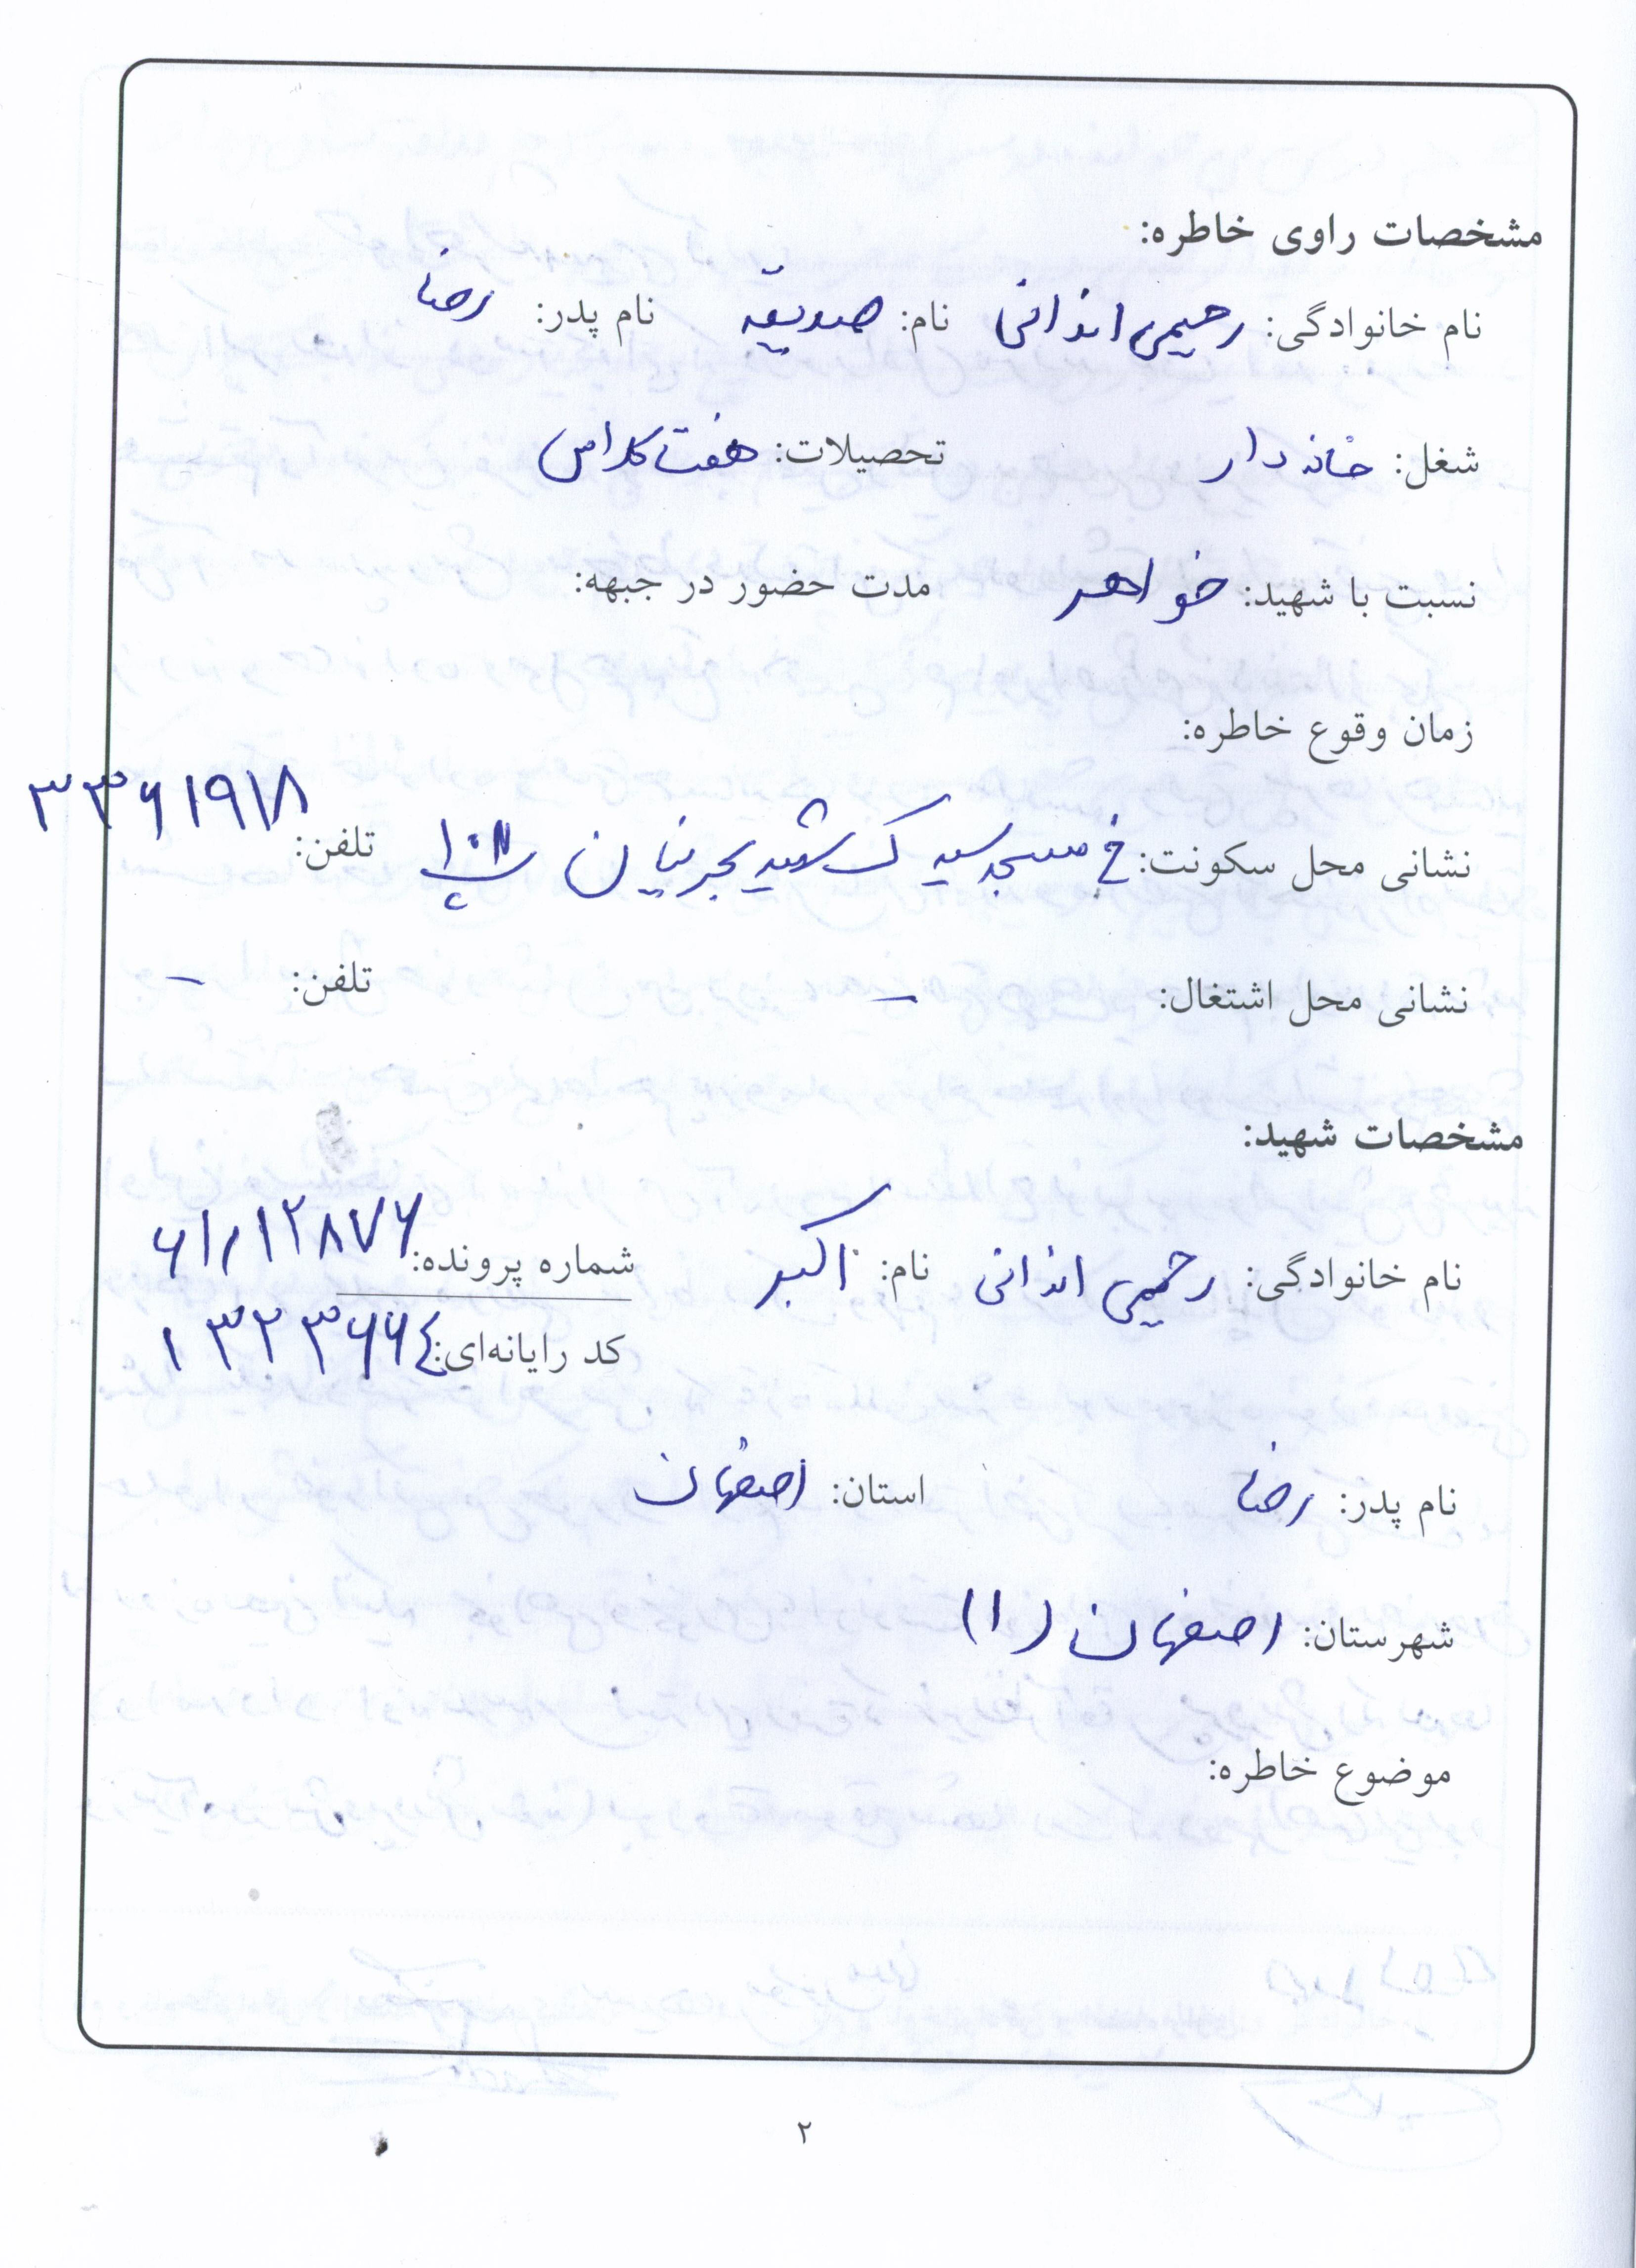 مشخصات راوی خاطره:
نام خانوادگی: رحیمی اندانی نام: صدیقه نام پدر: رضا
شغل: خانه دار تحصیلات: هفت کلاس
نسبت با شهید: خواهر مدت حضور در جبهه:
زمان وقوع خاطره:
نشانی محل سکونت: خ مسجد سید ک شهید بحرینیان پ تلفن: ۳۳۶۱۹۱۸
نشانی محل اشتغال: - تلفن: -
مشخصات شهید:
نام خانوادگی: رحیمی اندانی نام: اکبر شماره پرونده: ۶۱/۱۲۸۷۶
کد رایانه‌ای: ۱۳۲۳۶۶۴
نام پدر: رضا استان: اصفهان
شهرستان: اصفهان (۱)
موضوع خاطره:
۲